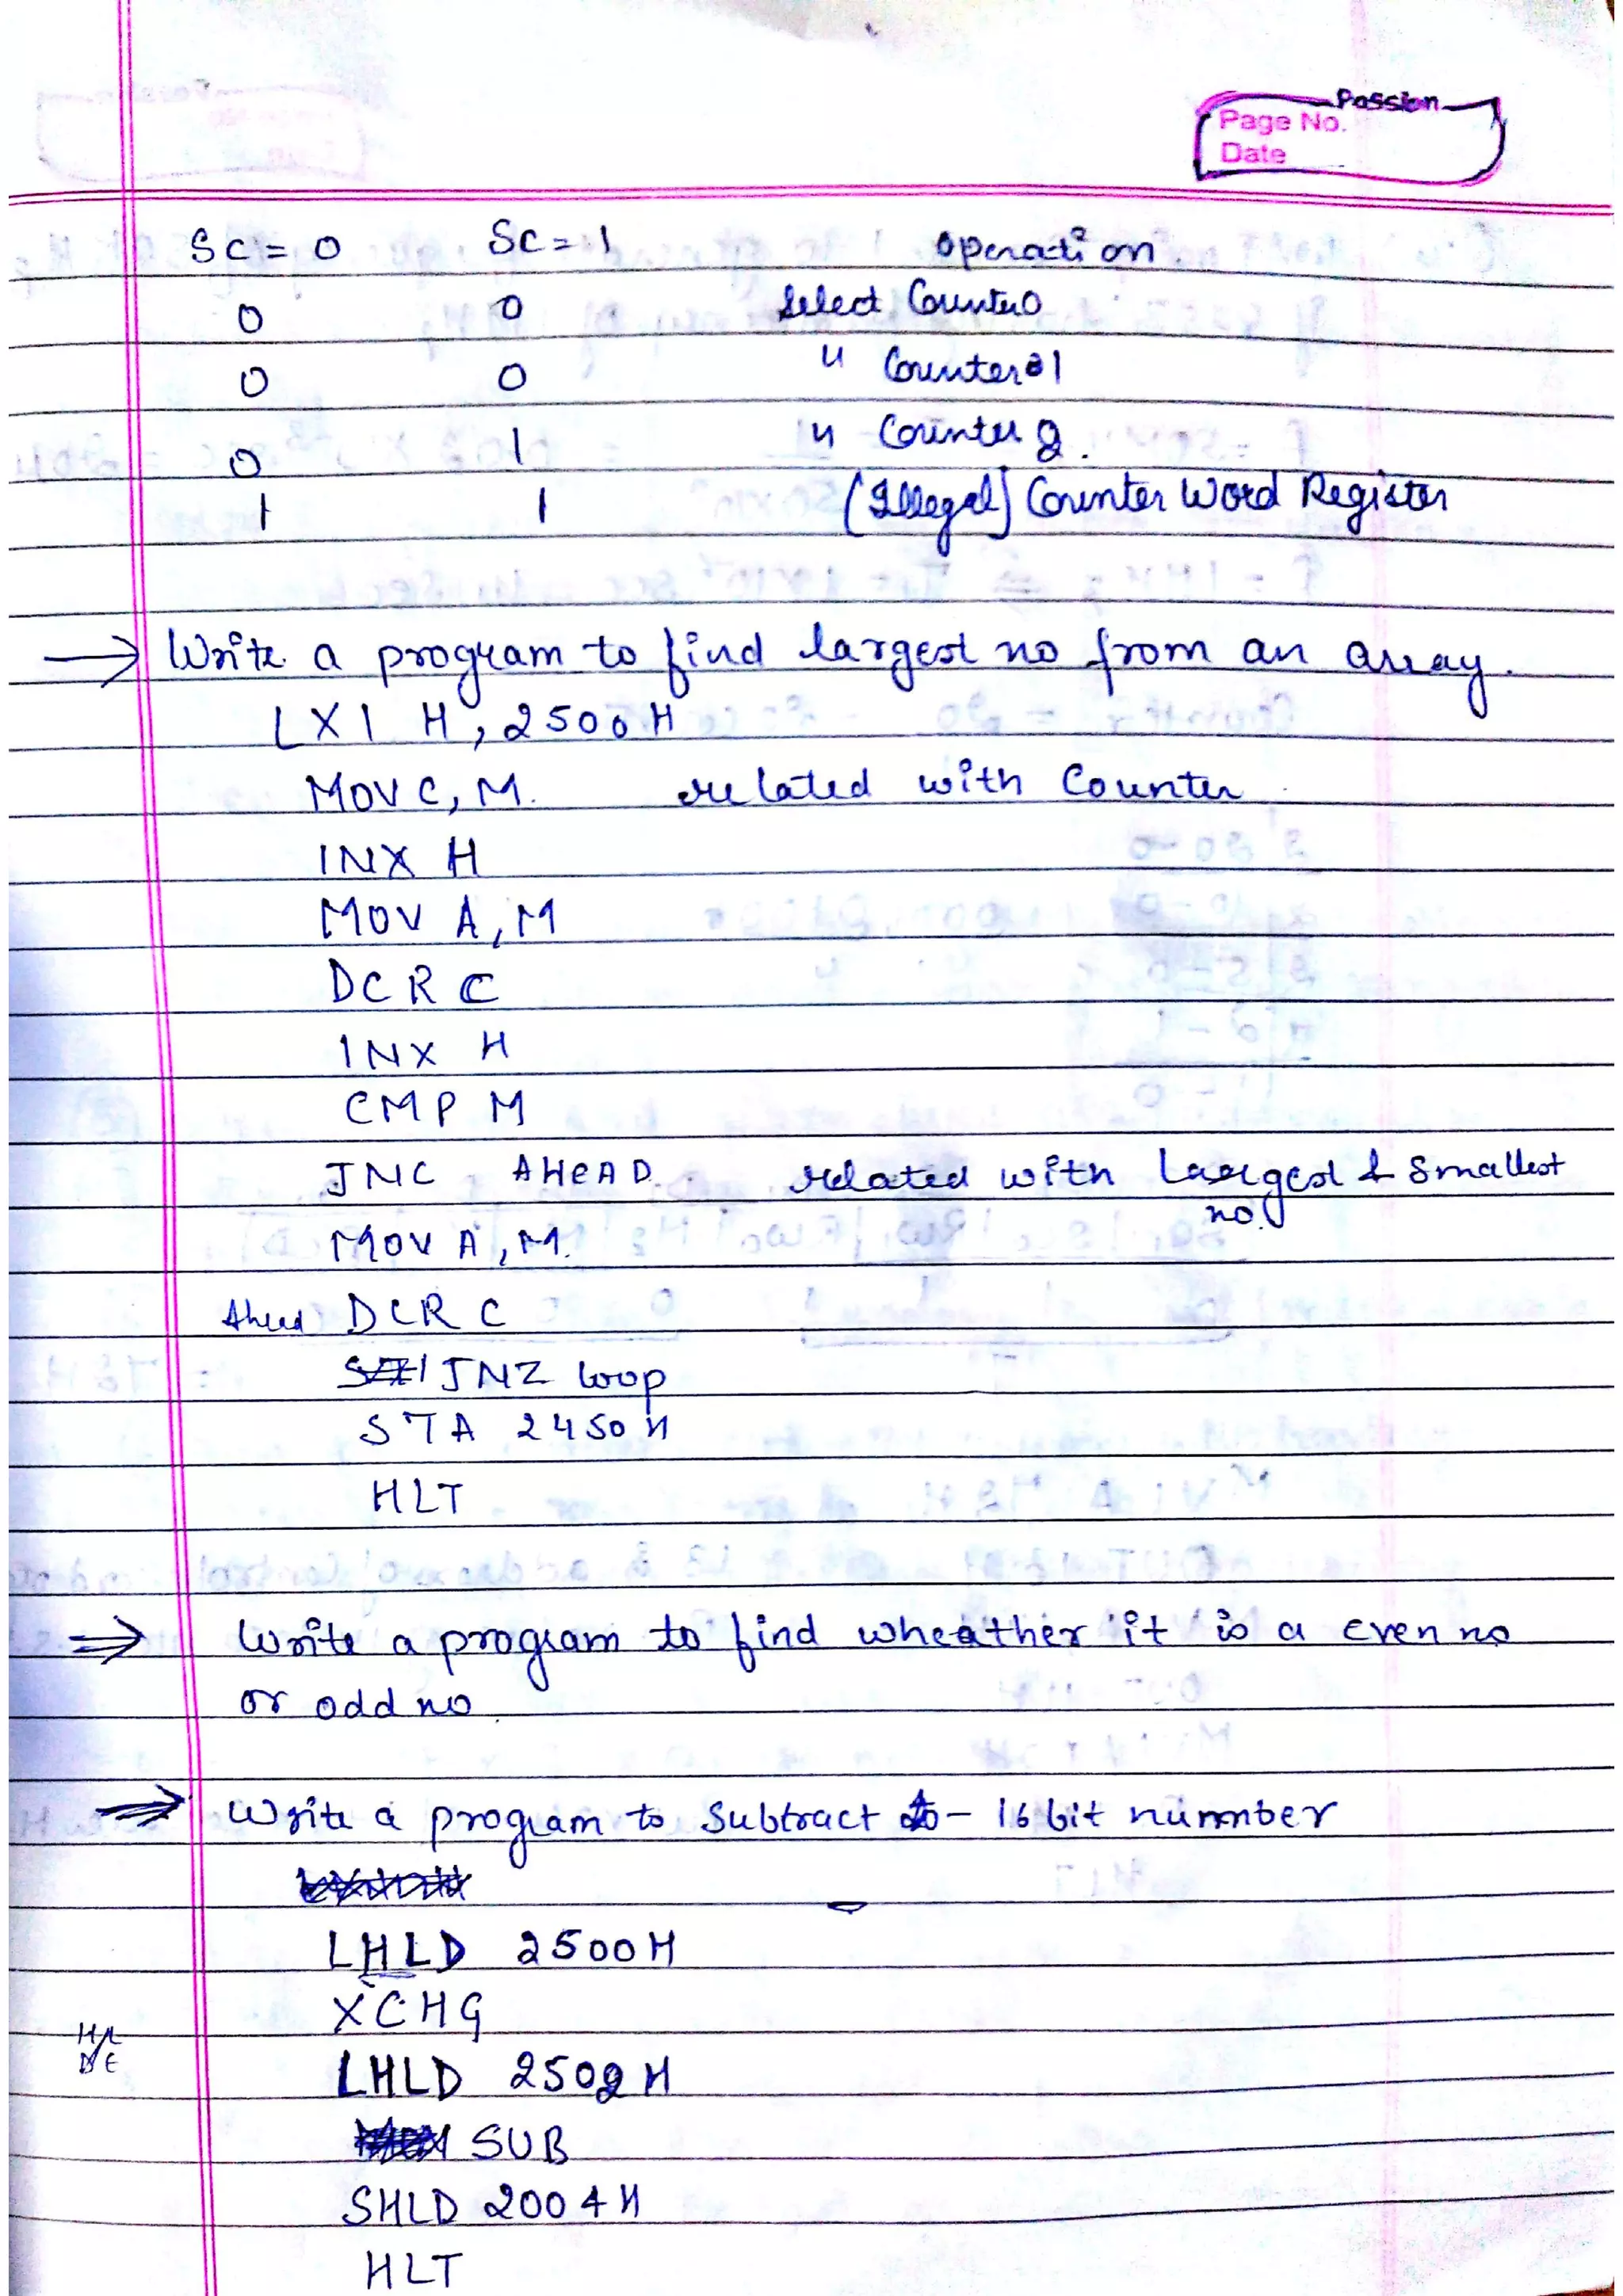 Passion
Page No.
Date
SC = 0 SC = 1 Operation
0 0 Select Counter0
0 0 " Counter 1
0 1 " Counter 2.
1 1 (Illegal) Counter Word Register
→ Write a program to find largest no from an array.
LXI H, 2500H
MOV C, M. related with Counter
INX H
MOV A, M
DCR C
INX H
CMP M
JNC AHEAD. related with Largest & Smallest
no.
MOV A, M.
Ahead DCR C
JNZ loop
STA 2450H
HLT
⇒ Write a program to find wheather it is a even no
or odd no.
⇒ Write a program to Subtract - 16 bit number
LHLD 2500H
XCHG
HL
DE
LHLD 2502H
SUB
SHLD 2004H
HLT